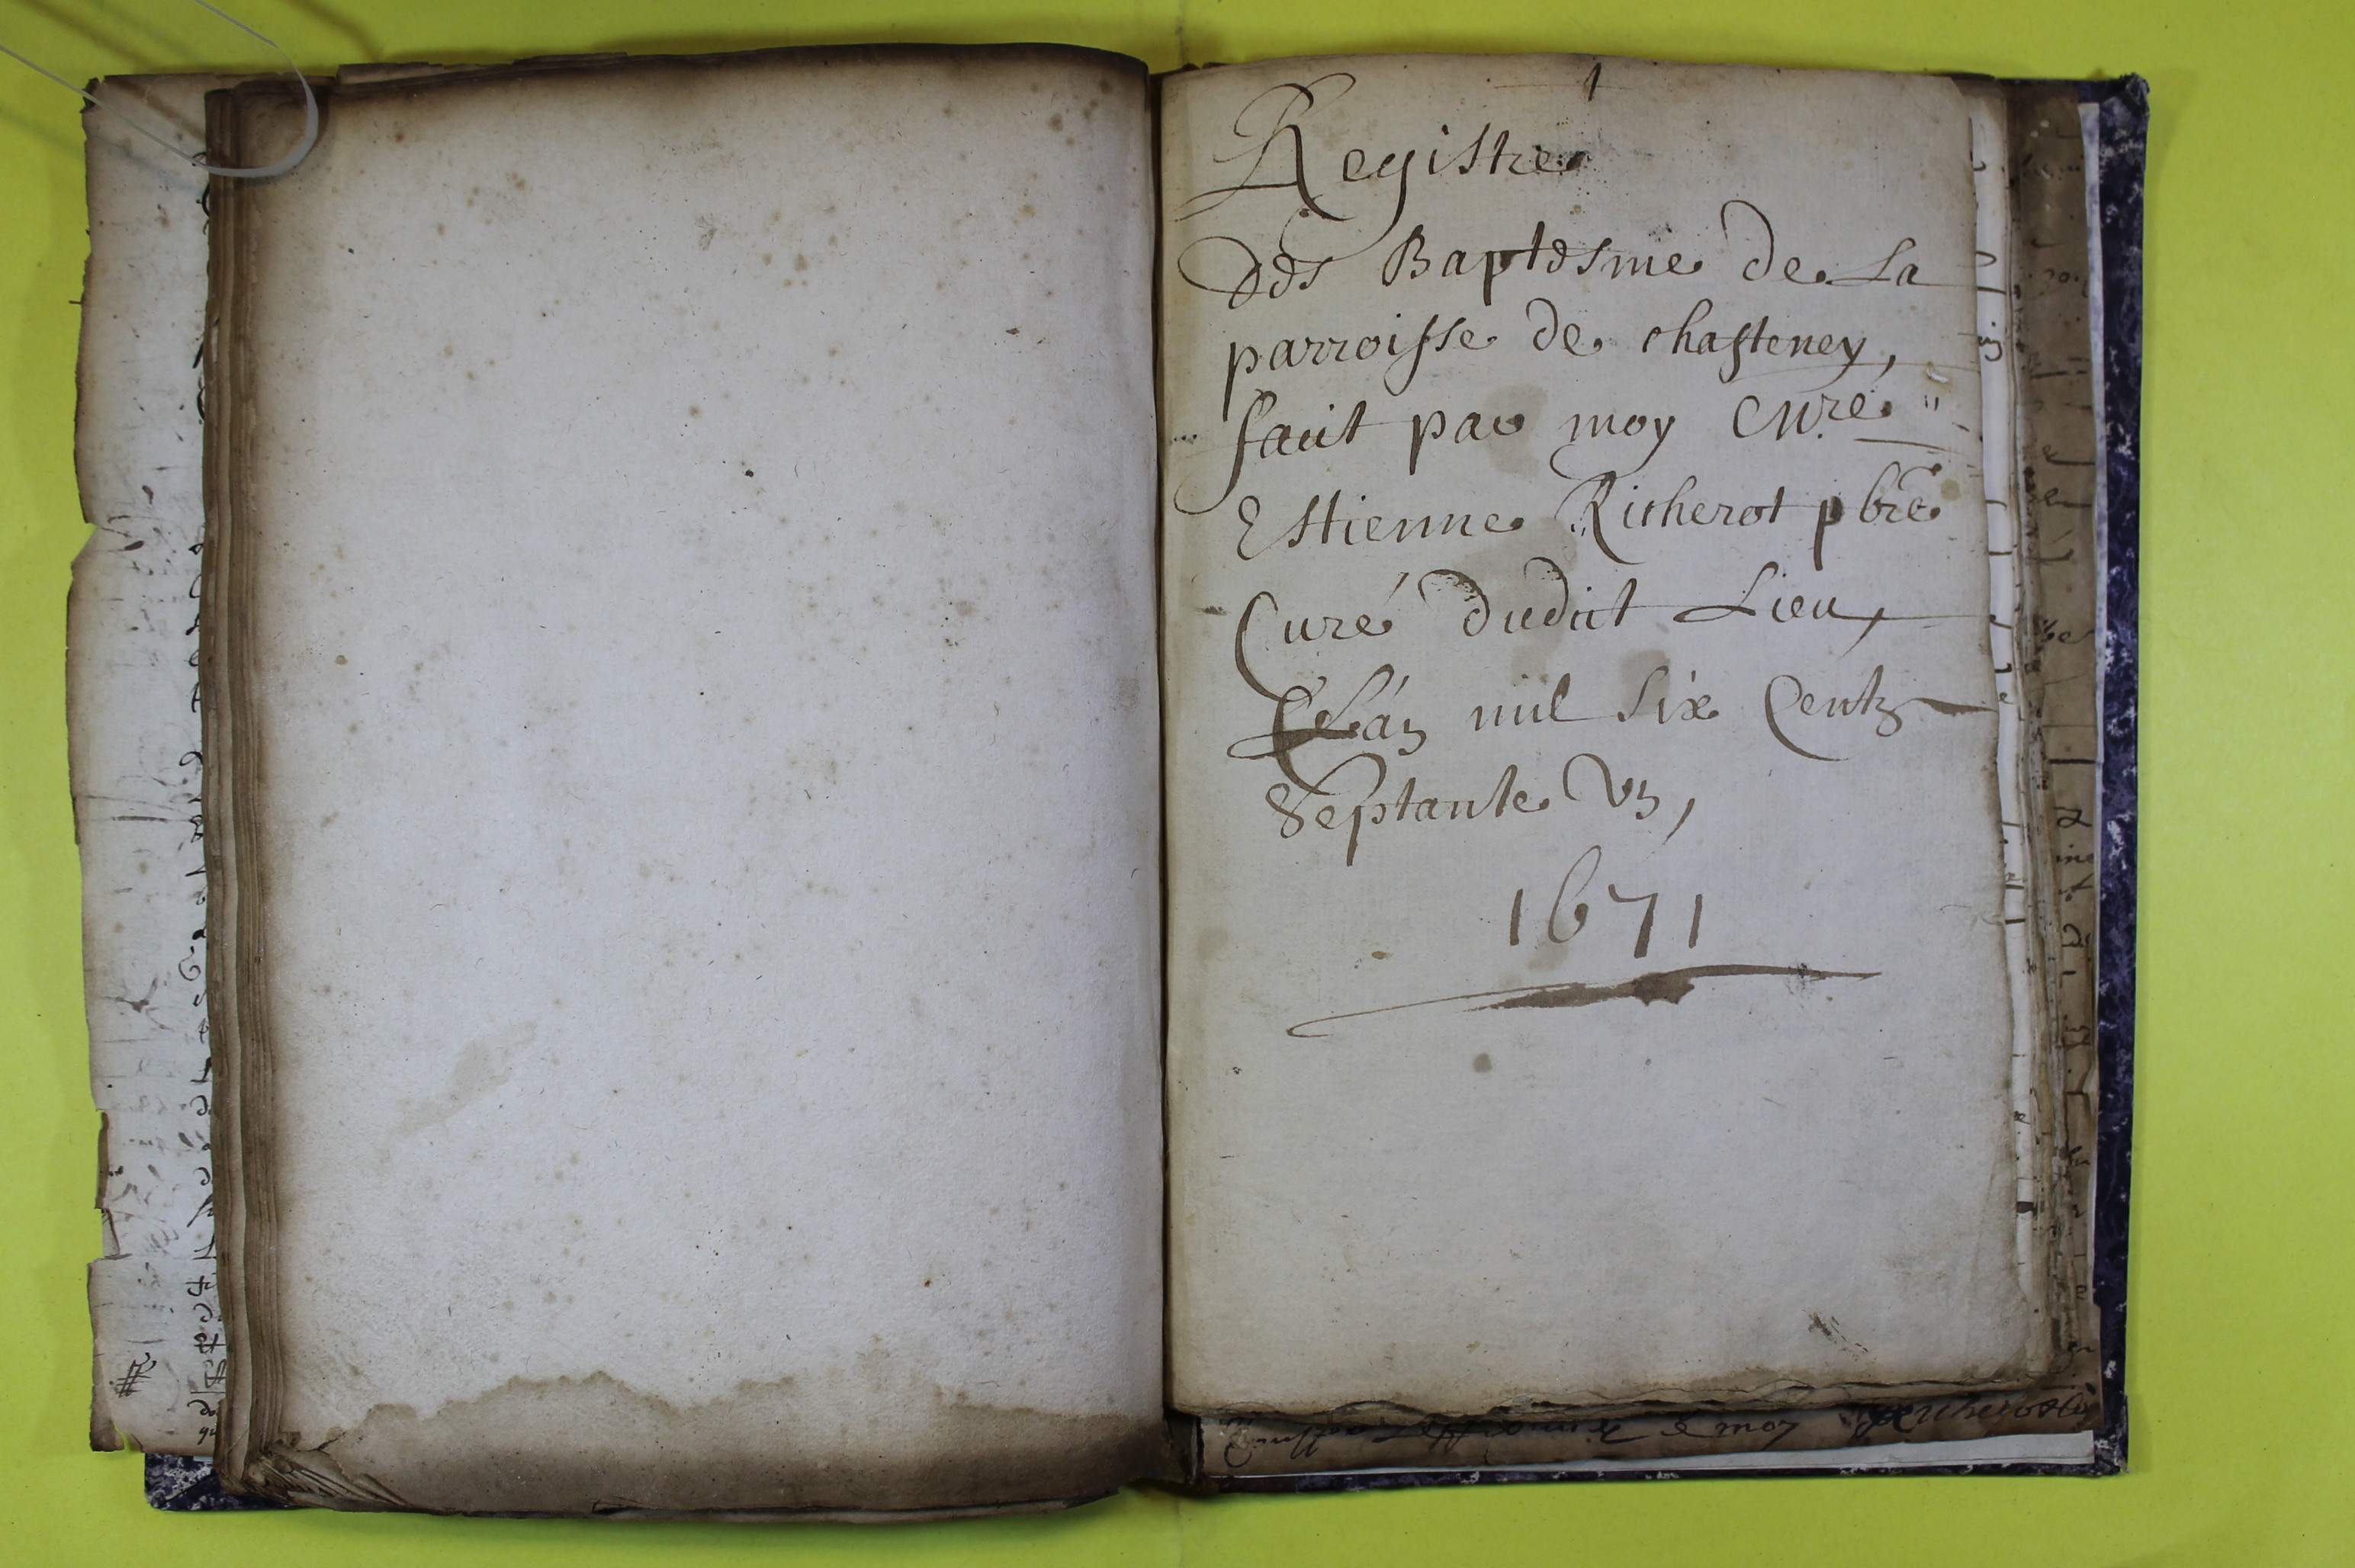 1
Registre
Des Baptesme de La
parroisse de chasteney,
fait par moy Curé
Estienne Richerot pbre
Curé dudit Lieu,
L'an mil six Centz
Septante Un,
1671
e moy